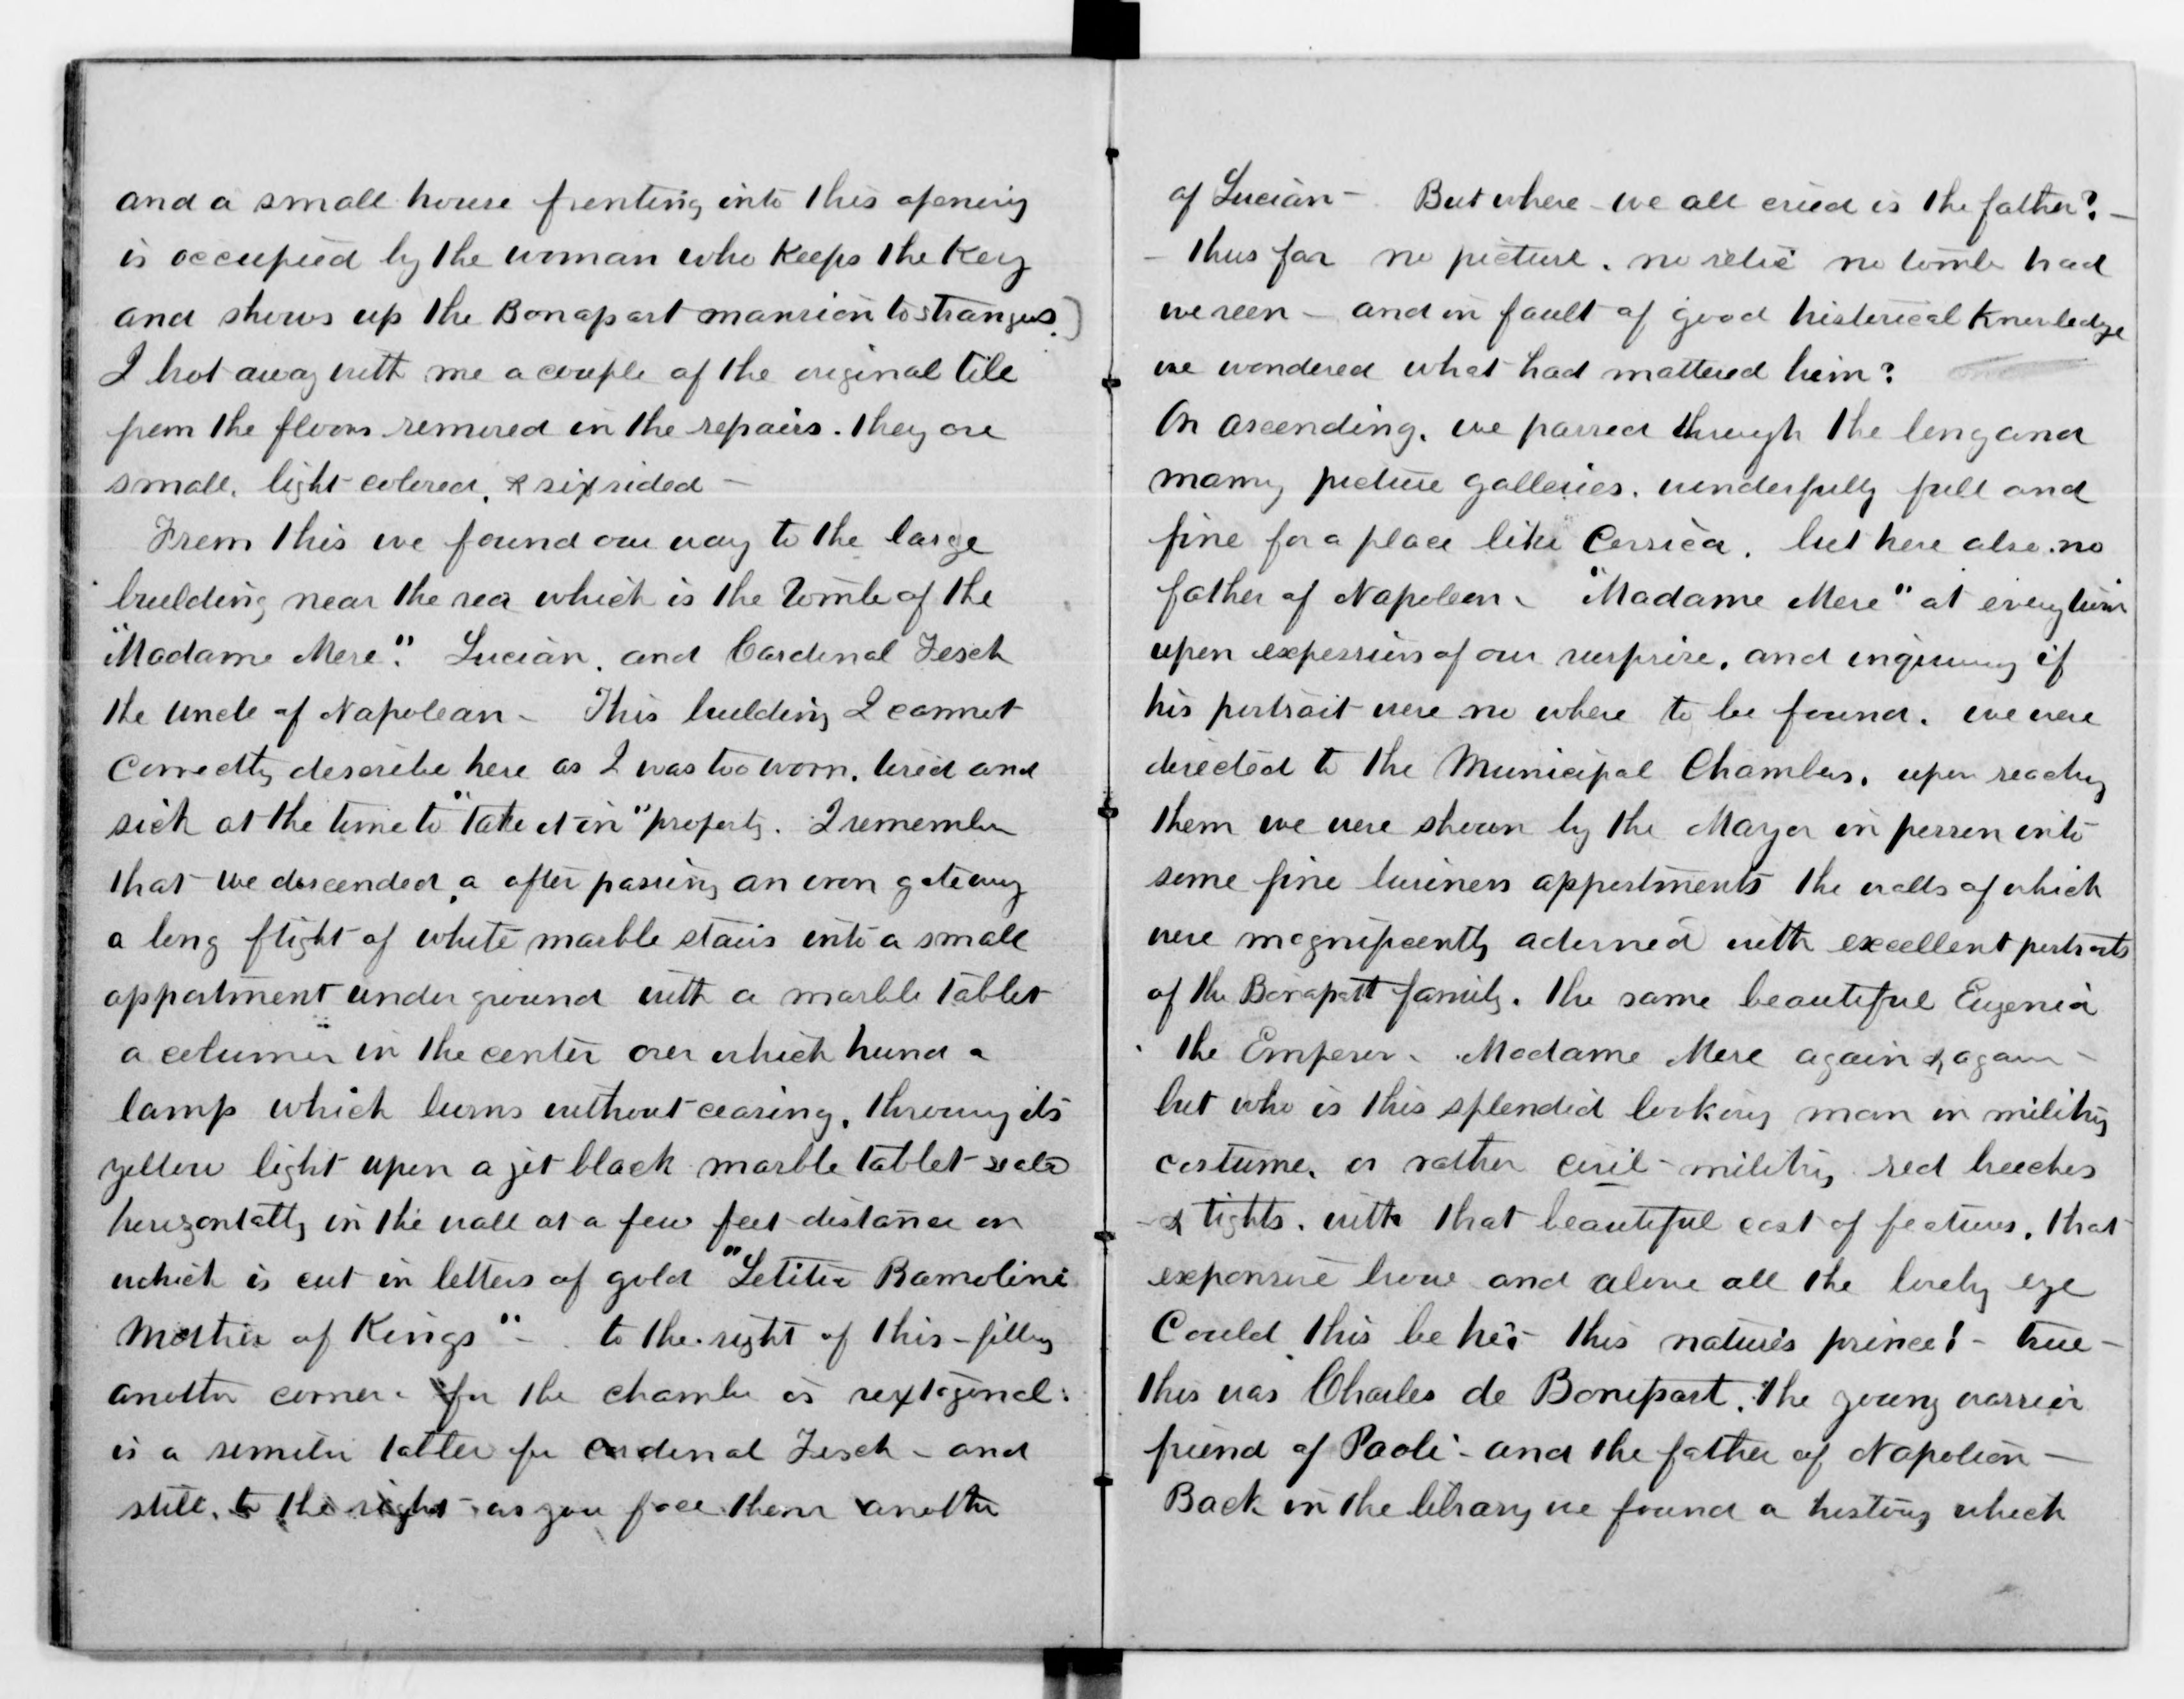 and a small house fronting into this opening
is occupied by the woman who keeps the key
and shows up the Bonapart mansion to strangers.)
I brot away with me a couple of the original tile
from the floors removed in the repairs. they are
small, light colored, & six sided -
From this we found our way to the large
building near the sea which is the Tomb of the
"Madame Mere". Lucian, and Cardinal Fesch
the uncle of Napolean - This building I cannot
correctly describe here as I was too worn, tired and
sick at the time to "take it in" properly. I remember
that we descended, a after passing an iron gateway
a long flight of white marble stairs into a small
appartment under ground with a marble tablet
a column in the center over which hund a
lamp which burns without ceasing, throwing its
yellow light upon a jet black marble tablet
horizontally in the wall at a few feet distance on
which is cut in letters of gold "Letitia Ramolini
Mother of Kings" - to the right of this - filling
another corner - for the chamber is sextagonal:
is a similar tablet for Cardinal Fesch - and
still, to the right - as you face them another
of Lucian - But where - we all cried is the father? -
- thus far no picture, no relic no tomb had
we seen - and in fault of good historical knowledge
we wondered what had mattered him?
On ascending, we passed through the long and
many picture galleries, wonderfully full and
fine for a place like Corsica, but here also no
father of Napoleon - "Madame Mere" at every turn
upon expression of our surprise, and inquiring if
his portrait were no where to be found, we were
directed to the Municipal Chambers, upon reaching
them we were shown by the Mayor in person into
some fine business appartments the walls of which
were magnificently adorned with excellent portraits
of the Bonapart family. the same beautiful Eugenia
the Emperor - Madame Mere again & again -
but who is this splendid looking man in military
costume, or rather civil - military red breeches
- & tights, with that beautiful cast of features, that
expansive brow and above all the lovely eye
Could this be he? - this nature's prince! - true -
this was Charles de Bonipart, the young warrior
friend of Paoli - and the father of Napoleon -
Back in the library we found a history which